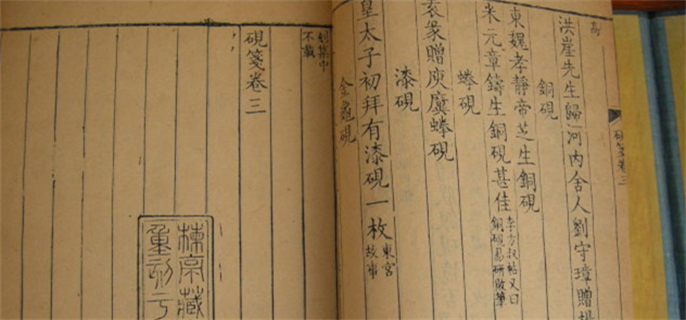 硯箋卷三
洪崖先生歸河内舍人劉守璋贈揚
銅硯
東魏孝靜帝芝生銅硯
米元章鑄生銅硯甚佳
李方叔帖又曰
銅硯易研敗筆
蜯硯
袁彖贈庾廙蜯硯
漆硯
皇太子初拜有漆硯一枚
東宮
故事
金龜硯
集中
不載
硯箋卷三
楝亭藏
重刻于